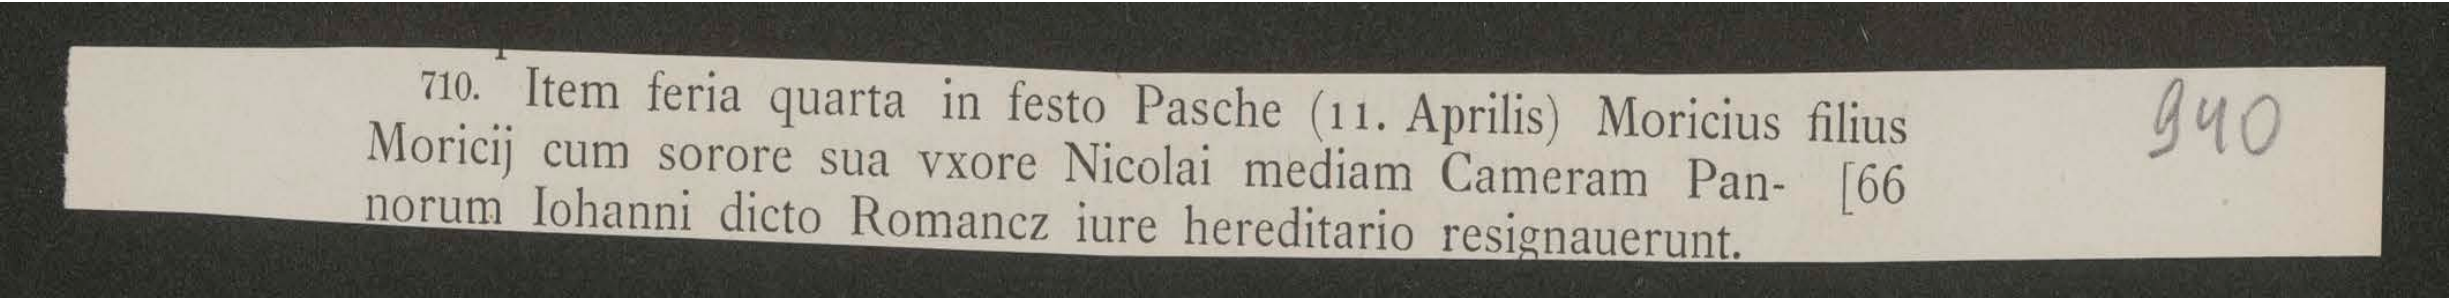 710. Item feria quarta in festo Pasche (11. Aprilis) Moricius filius
Moricij cum sorore sua vxore Nicolai mediam Cameram Pan- [66
norum Iohanni dicto Romancz iure hereditario resignauerunt.
940